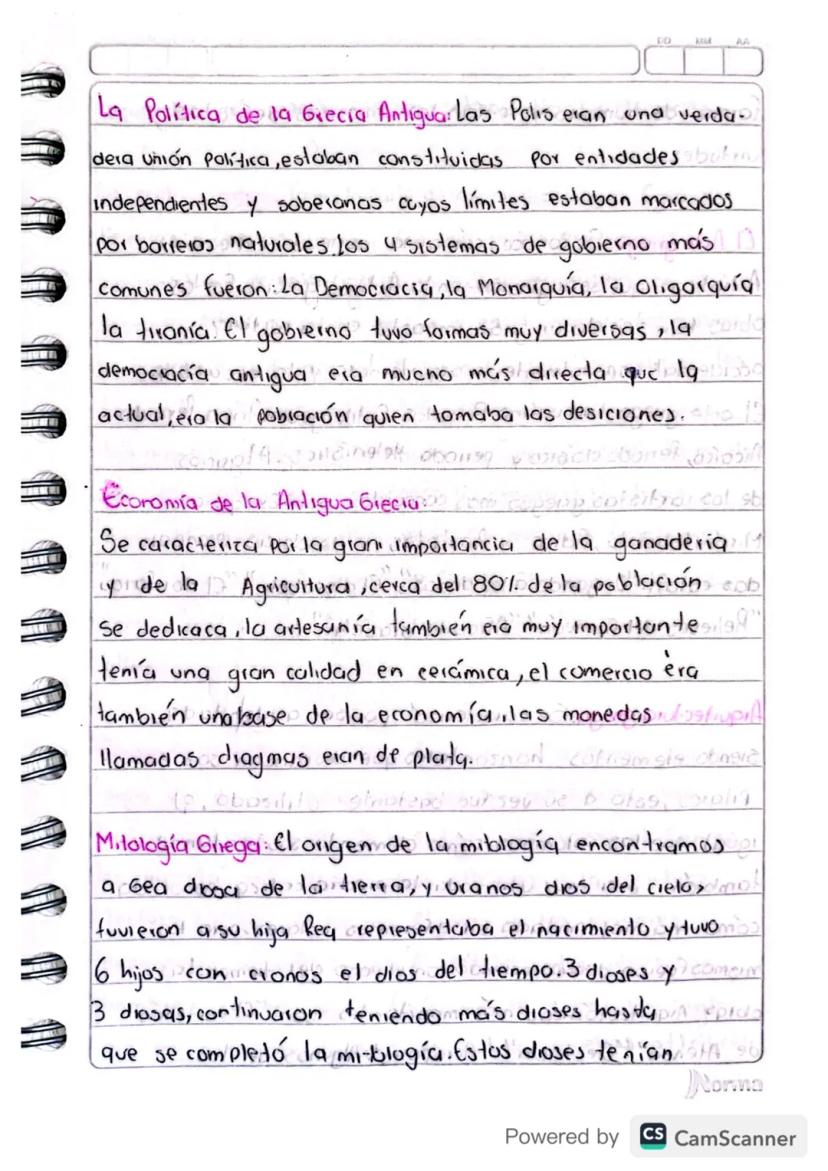 DD MM AA
La Política de la Grecia Antigua: Las Polis eran una verda-
dera unión política, estaban constituidas por entidades
independientes y soberanas cuyos límites estaban marcados
por barreras naturales. los 4 sistemas de gobierno más
comunes fueron: La Democracia, la Monarquía, la Oligarquía
la tiranía. El gobierno tuvo formas muy diversas, la
democracía antigua era mucho más directa que la
actual, era la población quien tomaba las desiciones.
Economía de la Antigua Grecia:
Se caracteriza por la gran importancia de la ganaderia
y de la Agricultura, cerca del 80% de la población
se dedicaca, la artesanía también era muy importante
tenía una gran calidad en cerámica, el comercio era
también una base de la economía, las monedas
llamadas dragmas eran de plata.
Mitología Griega: El origen de la mitología encontramos
a Gea diosa de la tierra, y Uranos dios del cielo,
tuvieron a su hija Rea representaba el nacimiento y tuvo
6 hijos con cronos el dios del tiempo. 3 dioses y
3 diosas, continuaron teniendo más dioses hasta
que se completó la mitología. Estos dioses tenían
Norma
Powered by CS CamScanner